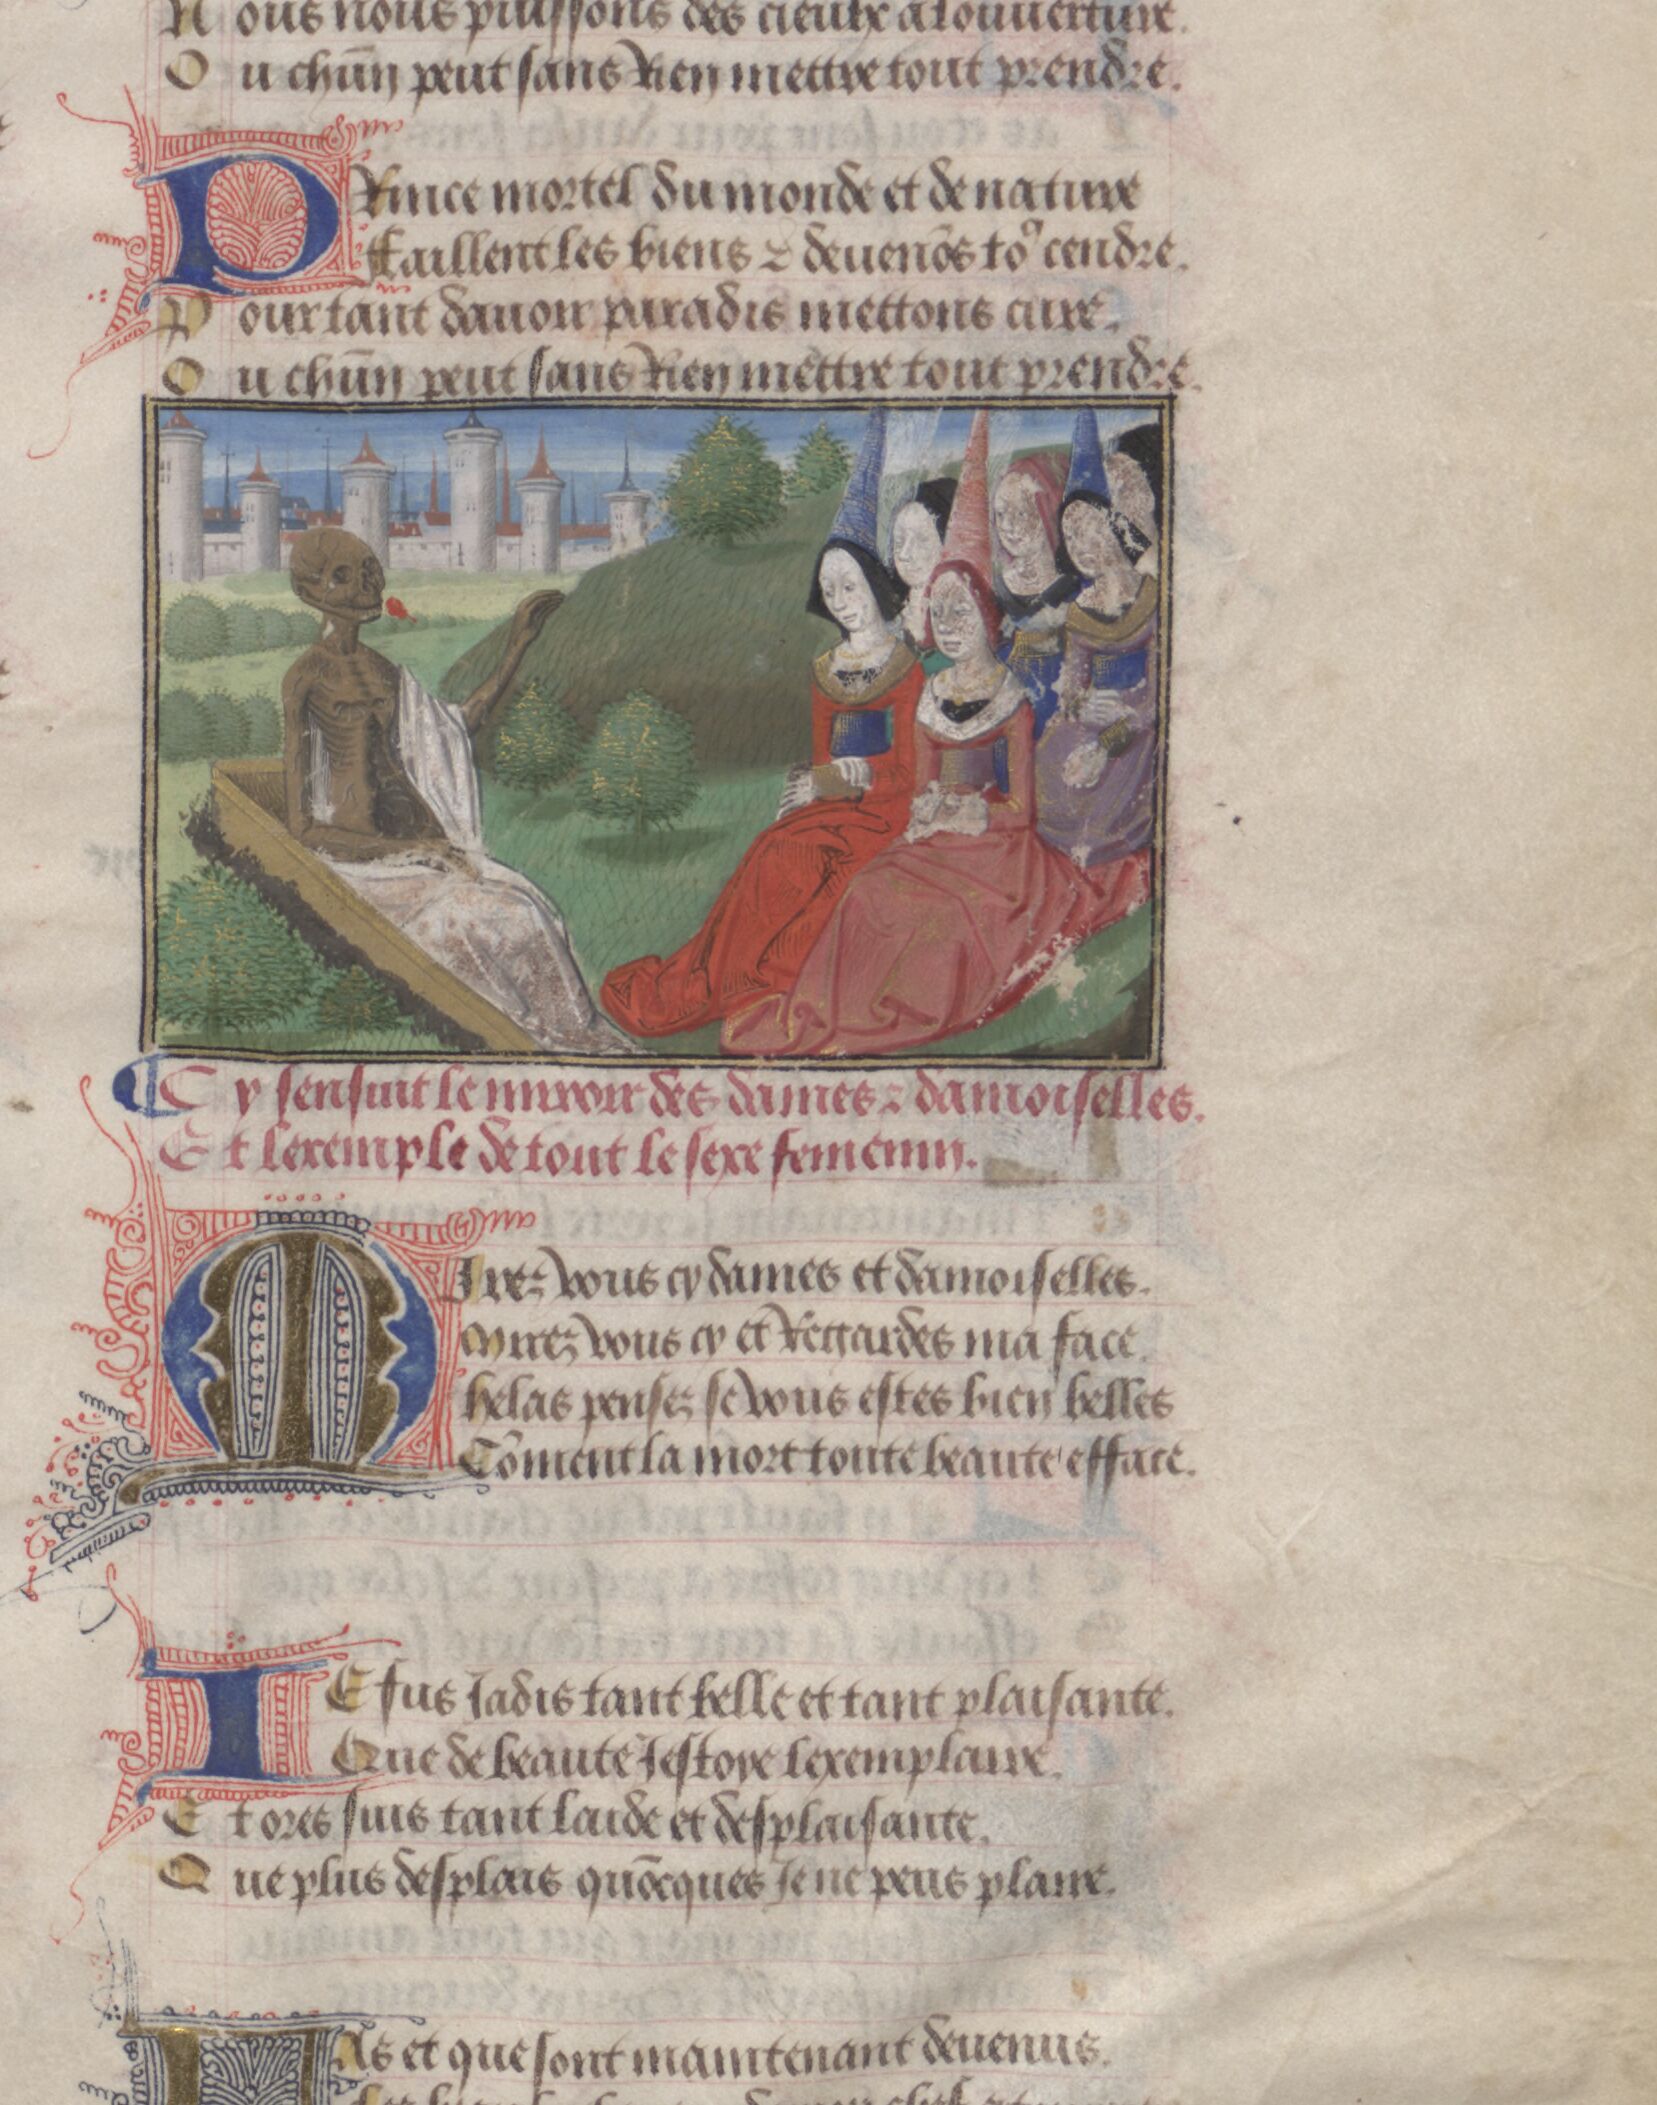 Nous nous puissons des cieulx a louverture.
Ou chũn peut sans Rien mettre tout prendre.
PRince mortel du monde et de nature
ffaillent les biens & deuenõs toꝰ cendre.
Pourtant dauoir paradis mettons cure.
Ou chũn peut sans Rien mettre tout prendre.
¶ Cy sensuit le miroir des dames & damoiselles.
Et lexemple de tout le sexe femenin.
MIrez vous cy dames et damoiselles.
Mirez vous cy et Regardes ma face.
helas pensez se vous estes bien belles
Cõment la mort toute beaute efface.
IE fus Jadis tant belle et tant plaisante.
Que de beaute Jestoye lexemplaire.
Et ores suis tant laide et desplaisante.
Que plus desplais quõcques Je ne peus plaire.
As et que sont maintenant deuenus.